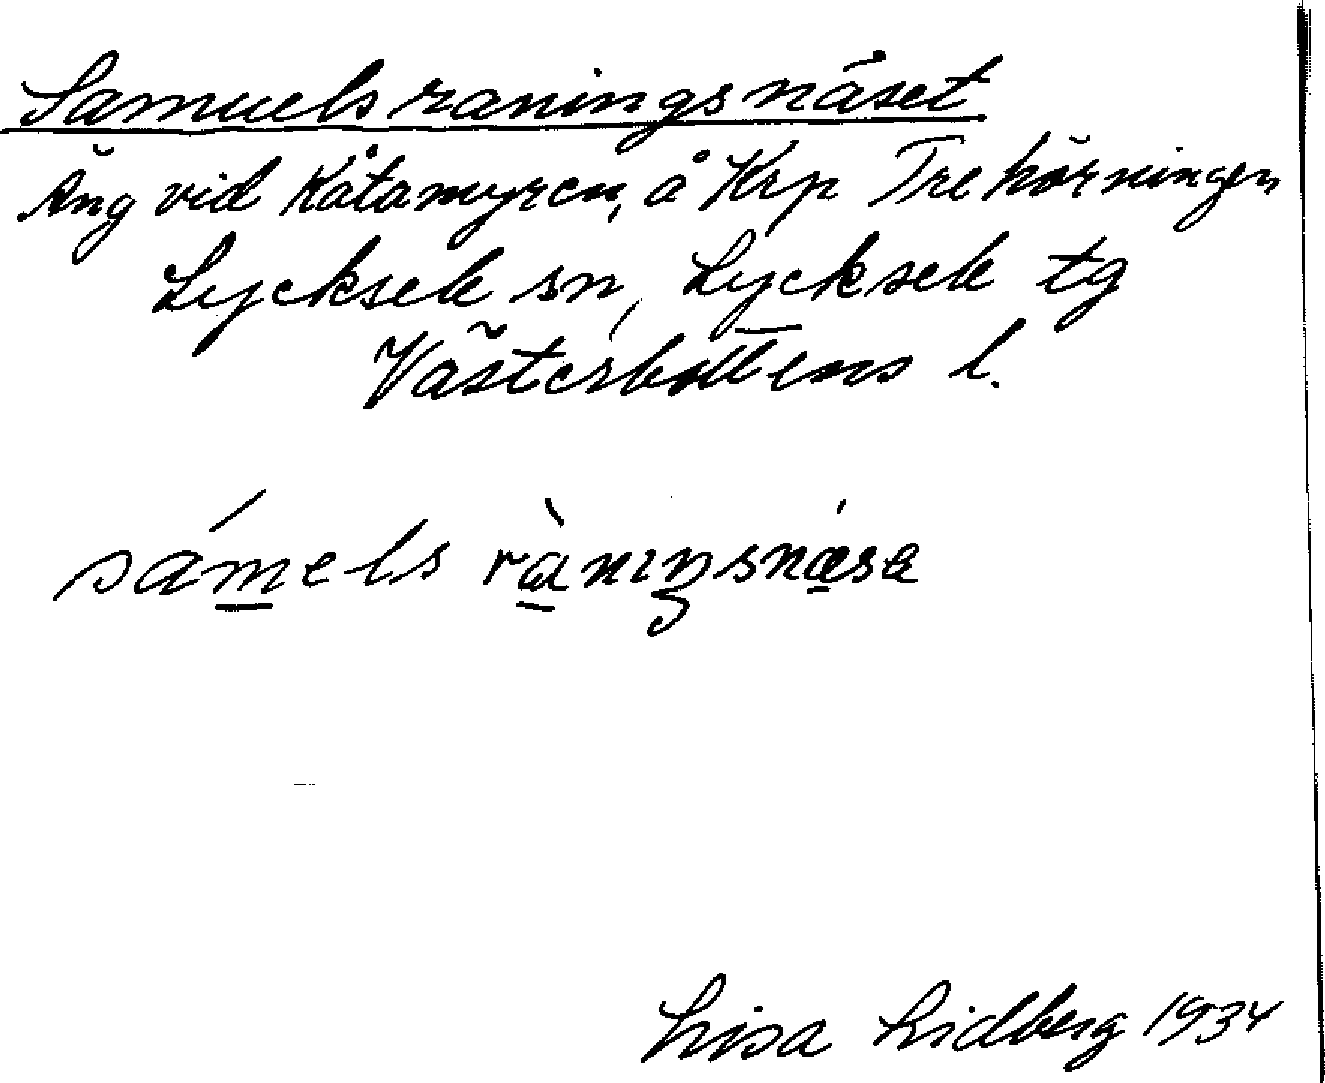 Samuelsraningsnäset
Äng vid Kåtamyren, å Krp Trehörningen
Lycksele sn, Lycksele tg
Västerbottens l.
sámels ràniŋsnǽsa
Lisa Lidberg 1934